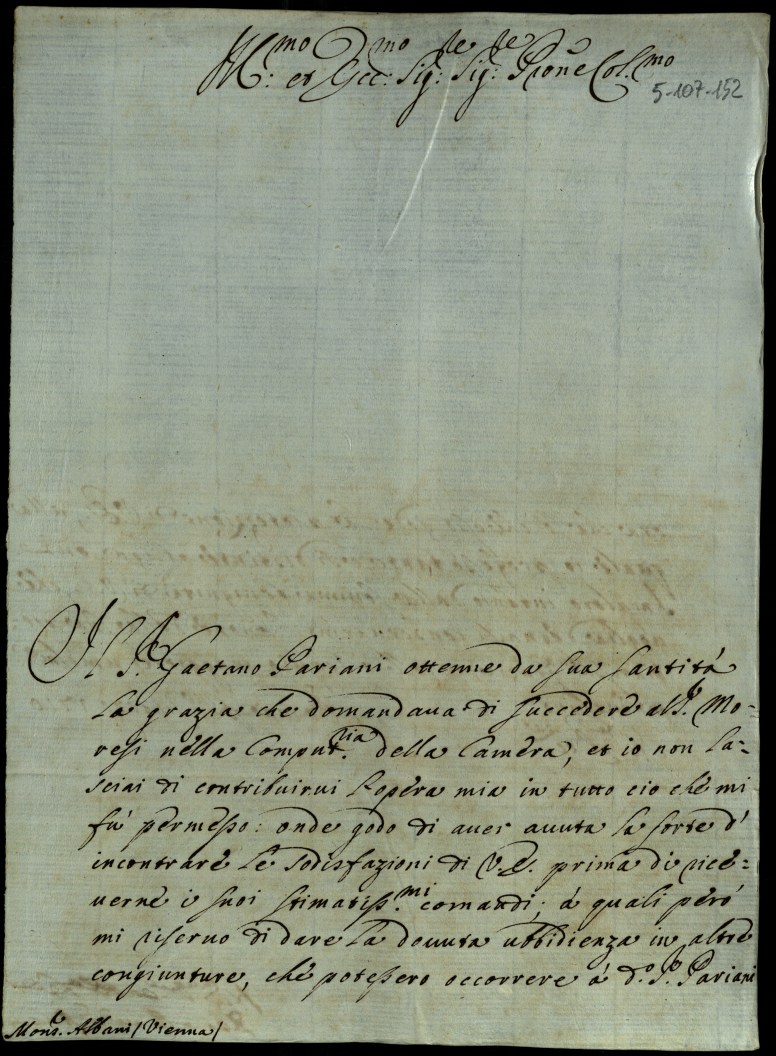 Ill:mo et Ecc:mo Sig:re Sig:re Prone Col.mo
5-107-152
Il S.r Gaetano Pariani ottenne da sua santità
la grazia che domandaua di succedere al S.r Mo-
resi nella Comput.ria della Camera, et io non la=
sciai di contribuirui l'opera mia in tutto ciò che mi
fù permesso: onde godo di auer auuta la sorte d'
incontrare le sodisfazioni di V.E. prima di rice=
uerne i suoi stimatiss.mi comandi; à quali però
mi riseruo di dare la douuta ubbidienza in altre
congiunture, che potessero occorrere à d.o S.r Pariani
Mons.r Albani (Vienna)